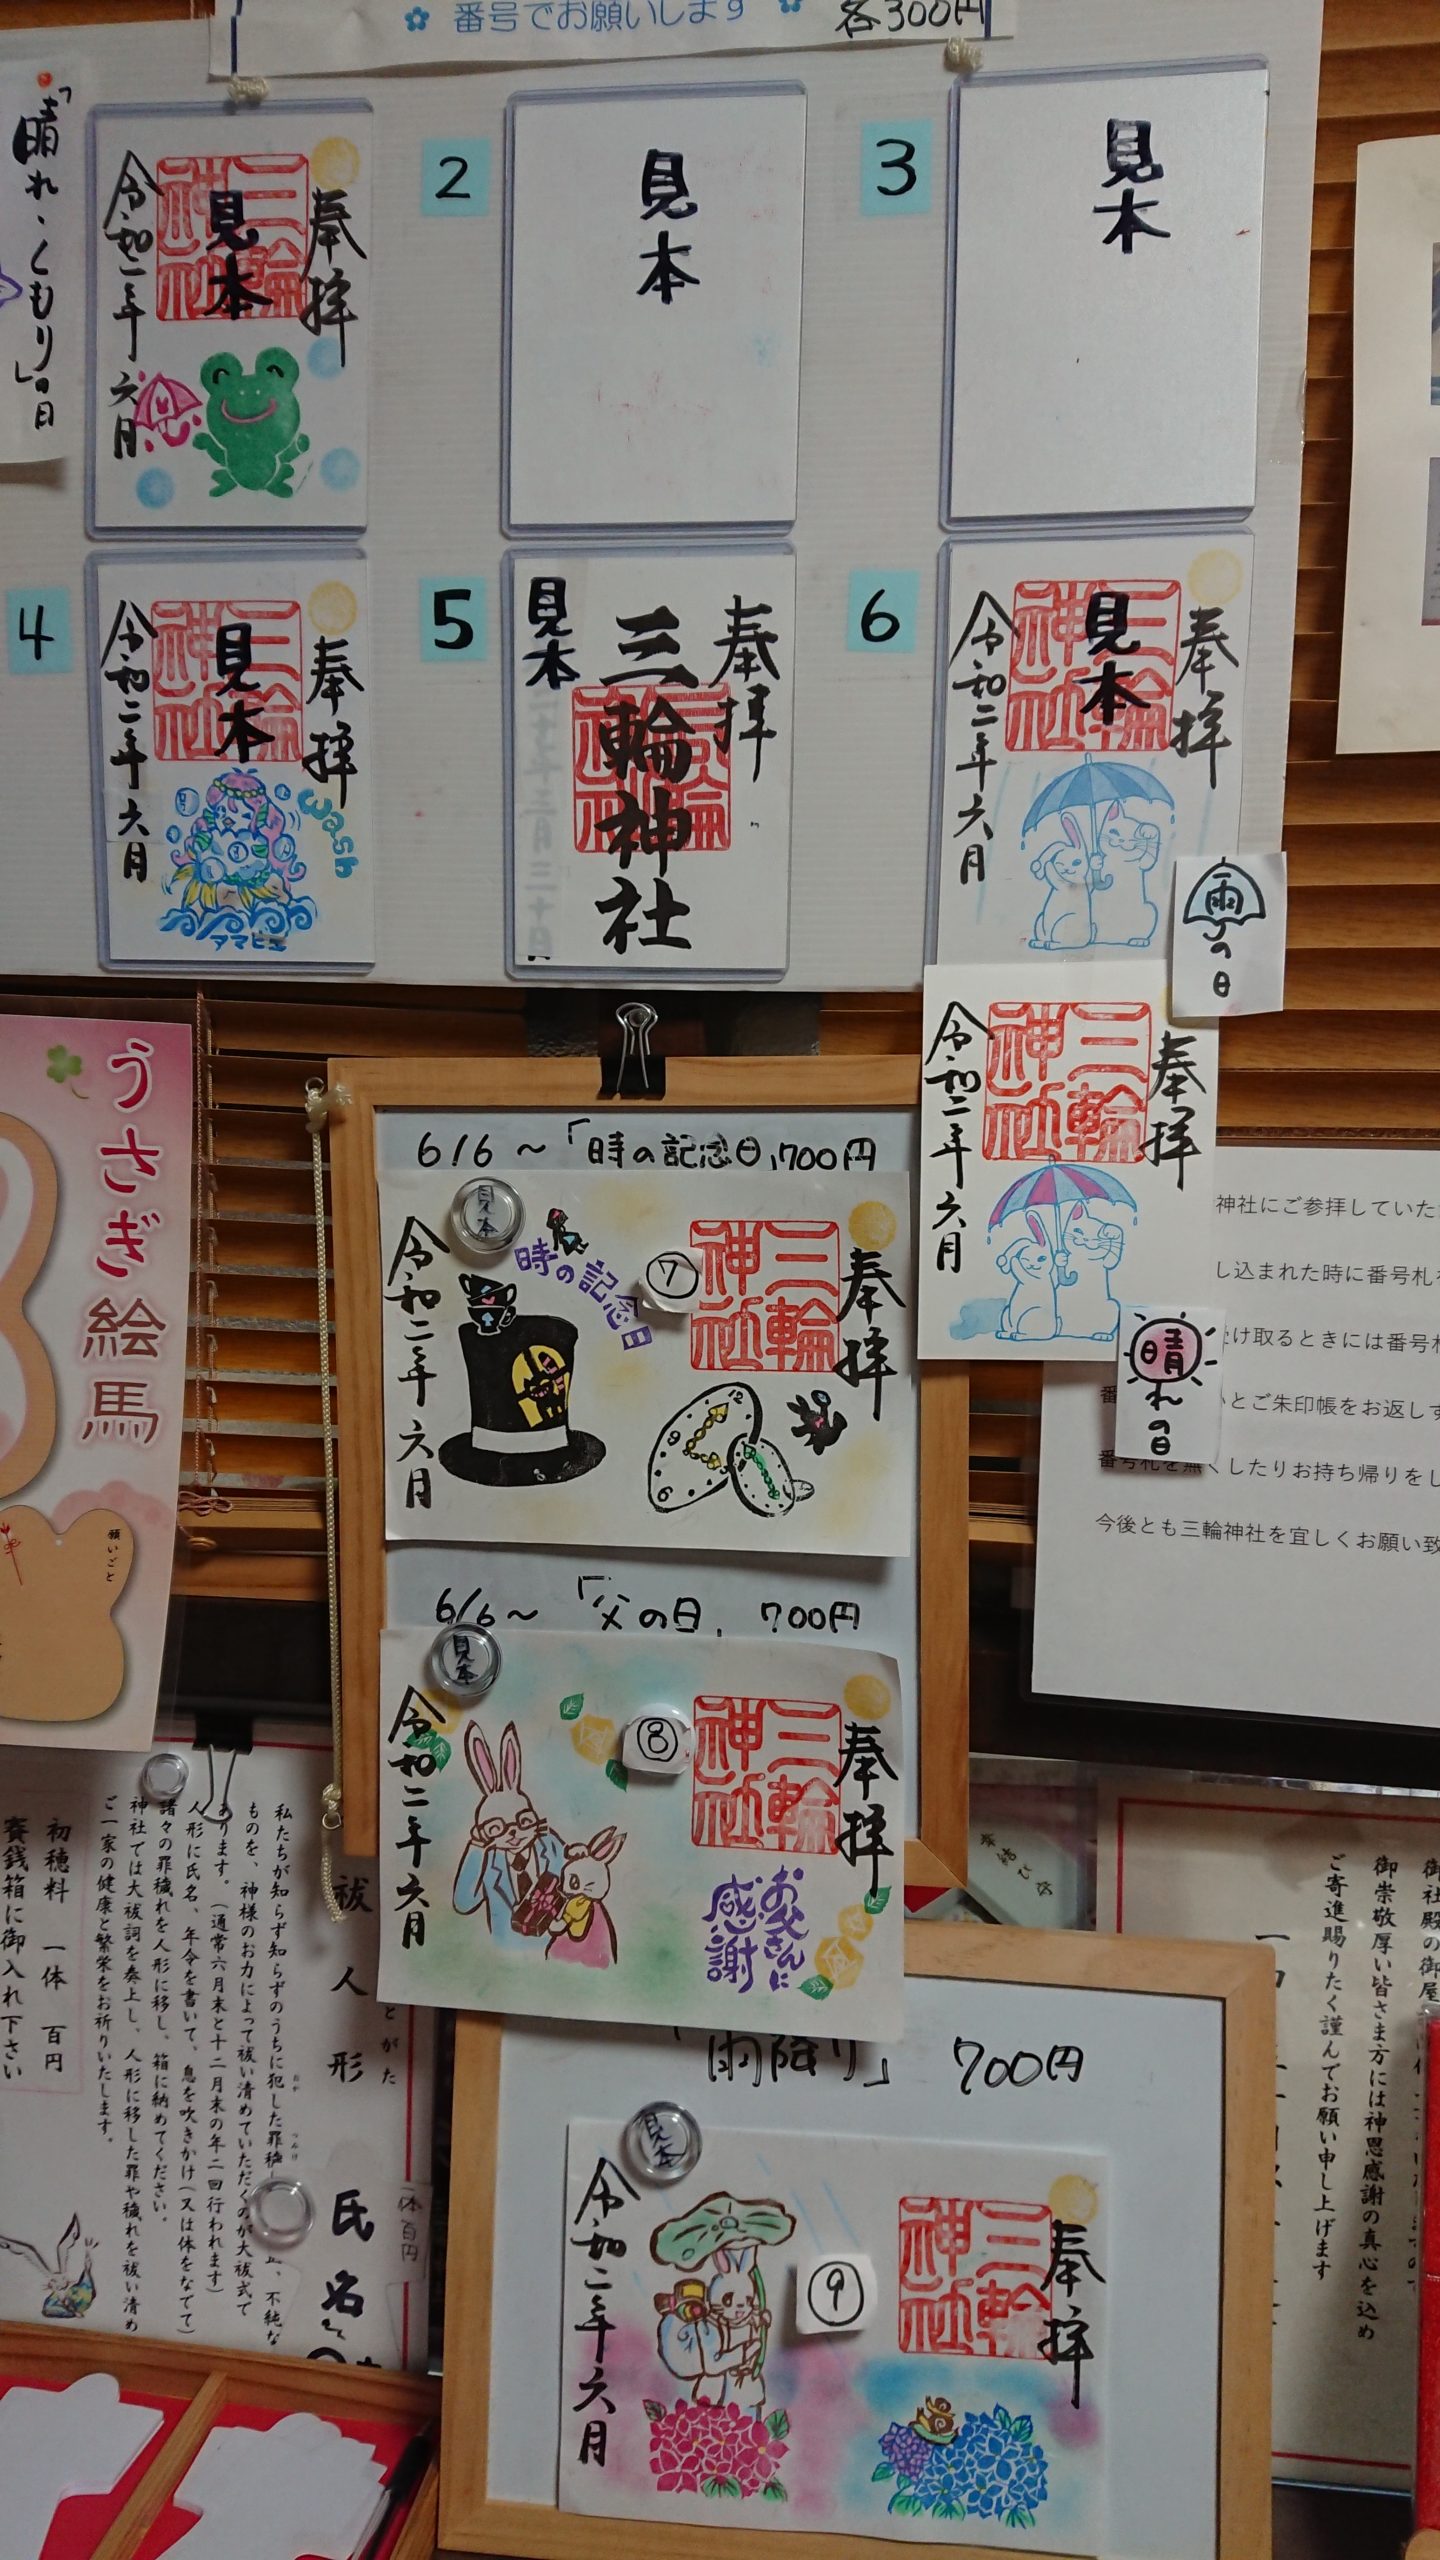 番号でお願いします
各300円
「晴れ・くもり」の日
奉拝
三輪神社
見本
令和二年六月
2
見本
3
見本
4
奉拝
三輪神社
見本
令和二年六月
wash
アマビエ
5
見本
奉拝
三輪神社
三輪神社
6
奉拝
三輪神社
見本
令和二年六月
雨の日
奉拝
三輪神社
令和二年六月
晴れの日
うさぎ絵馬
願いごと
6/6～「時の記念日」700円
見本
奉拝
三輪神社
⑦
時の記念日
令和二年六月
12
9
6
6/6～「父の日」700円
見本
奉拝
三輪神社
⑧
お父さんに
感謝
令和二年六月
雨降り」 700円
見本
奉拝
三輪神社
⑨
令和二年六月
神社にご参拝していた
し込まれた時に番号札
け取るときには番号札
とご朱印帳をお返しす
番号札を無くしたりお持ち帰りをし
今後とも三輪神社を宜しくお願い致
祓人形
氏名
一体百円
私たちが知らず知らずのうちに犯した罪穢
不純な
ものを、神様のお力によって祓い清めていただくのが大祓式で
あります。(通常六月末と十二月末の年二回行われます)
人形に氏名、年令を書いて、息を吹きかけ(又は体をなでて)
諸々の罪穢れを人形に移し、箱に納めてください。
神社では大祓詞を奏上し、人形に移した罪や穢れを祓い清め
ご一家の健康と繁栄をお祈りいたします。
初穂料 一体 百円
賽銭箱に御入れ下さい
御社殿の御屋
御崇敬厚い皆さま方には神恩感謝の真心を込め
ご寄進賜りたく謹んでお願い申し上げます